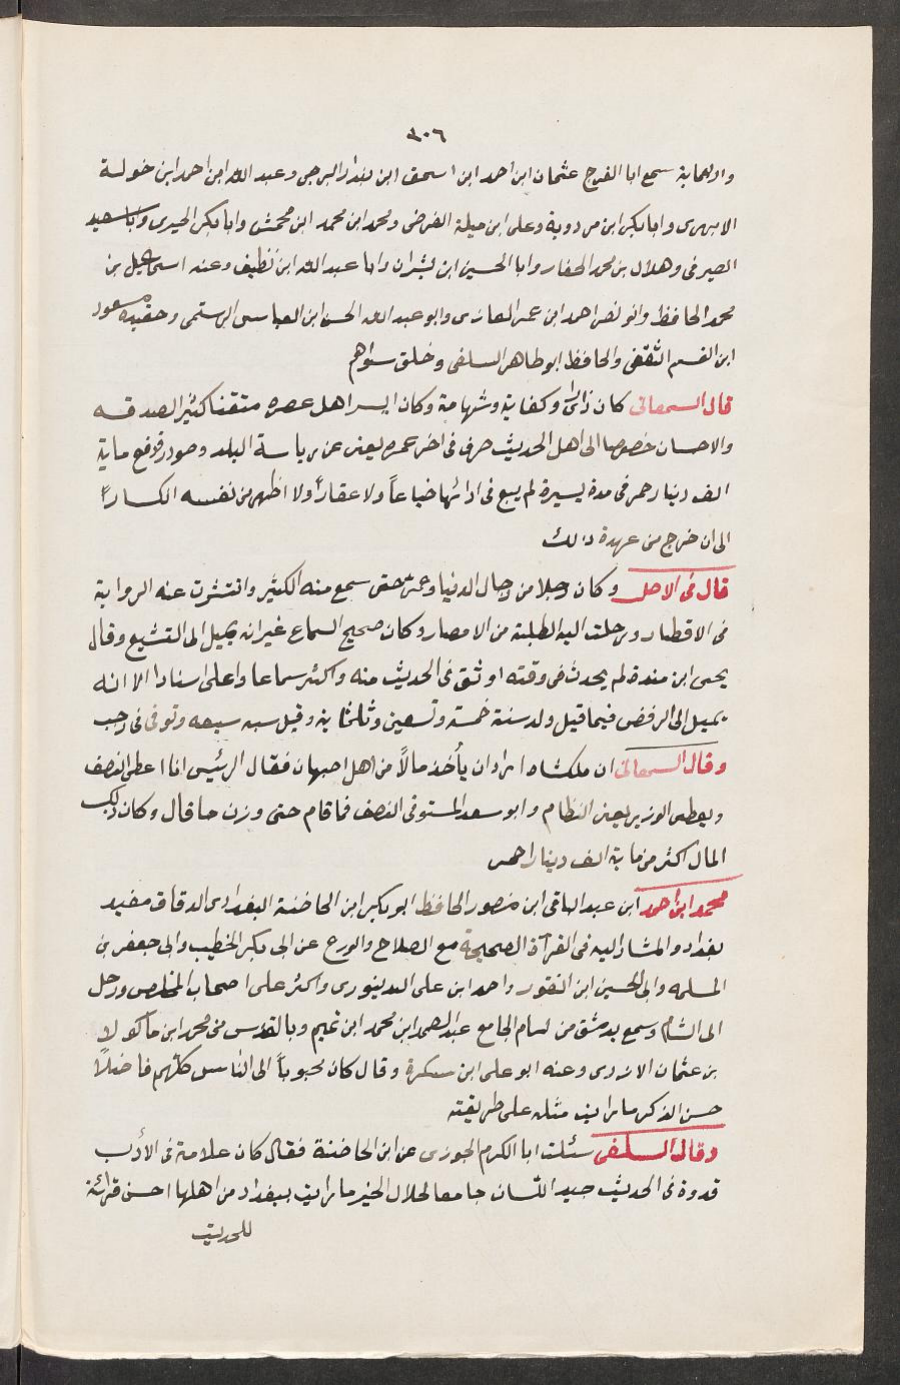 ٣٠٦
واربعماية سمع ابا الفرج عثمان ابن احمد ابن اسحق ابن بندار البرجى وعبد الله ابن احمد ابن خولة
الابهرى وابا بكر ابن مردوية وعلى ابن ميلة الفرضى ومحمد ابن محمد ابن محمش وابا بكر الحيرى وابا سعيد
الصيرفى وهلال بن محمد الحفار وابا الحسين ابن بشران وابا عبد الله ابن نظيف وعنه اسماعيل بن
محمد الحافظ وابو نصر احمد ابن عمر الغازى وابو عبد الله الحسن ابن العباس الرستمى وحفيده مسعود
ابن القسم الثقفى والحافظ ابو طاهر السلفى وخلق سواهم
قال السمعانى كان ذا راى وكفاية وشهامة وكان ايسر اهل عصره متقنا كثير الصدقه
والاحسان خصوصا الى اهل الحديث صرف فى اخر عمره يعنى عن رياسة البلد وصودر فوقع ماية
الف دينار حمر فى مدة يسيرة لم يبع فى ادائها ضياعاً ولا عقاراً ولا اظهر من نفسه انكساراً
الى ان خرج من عهدة ذلك
قال فى الاصل وكان رجلا من رجال الدنيا وعمر حتى سمع منه الكثير وانتشرت عنه الرواية
فى الاقطار ورحلت اليه الطلبة من الامصار وكان صحيح السماع غير انه يميل الى التشيع وقال
يحيى ابن مندة لم يحدث فى وقته اوثق فى الحديث منه واكثر سماعا واعلى اسنادا الا انه
يميل الى الرفض فيما قيل ولد سنة خمسة وتسعين وثلثماية وقيل سنه سبعه وتوفى فى رجب
وقال السمعانى ان ملكشاه اراد ان يأخذ مالاً من اهل اصبهان فقال الرئيس انا اعطى النصف
ويعطى الوزير يعنى النظام وابو سعد المستوفى النصف فما قام حتى وزن ما قال وكان ذلك
المال اكثر من ماية الف دينار احمر
محمد ابن احمد ابن عبد الباقى ابن منصور الحافظ ابو بكر ابن الخاضنة البغدادى الدقاق مفيد
بغداد والمشار اليه فى القرآة الصحيحة مع الصلاح والورع عن ابى بكر الخطيب وابى جعفر بن
المسلمه وابى الحسين ابن النقور واحمد ابن على الدينورى واكثر على اصحاب المخلص ورحل
الى الشام وسمع بدمشق من امام الجامع عبد الصمد ابن محمد ابن تميم وبالقدس من محمد ابن ماكولا
بن عثمان الازدى وعنه ابو على ابن سكرة وقال كان محبوباً الى الناس كلهم فاضلاً
حسن الذكر ما رايت مثله على طريقته
وقال السلفى سئلت ابا الكرم الجوزى عن ابن الخاضنة فقال كان علامة فى الأدب
قدوة فى الحديث جيد اللسان جامعا لخلال الخير ما رايت ببغداد من اهلها احسن قرائة
للحديث